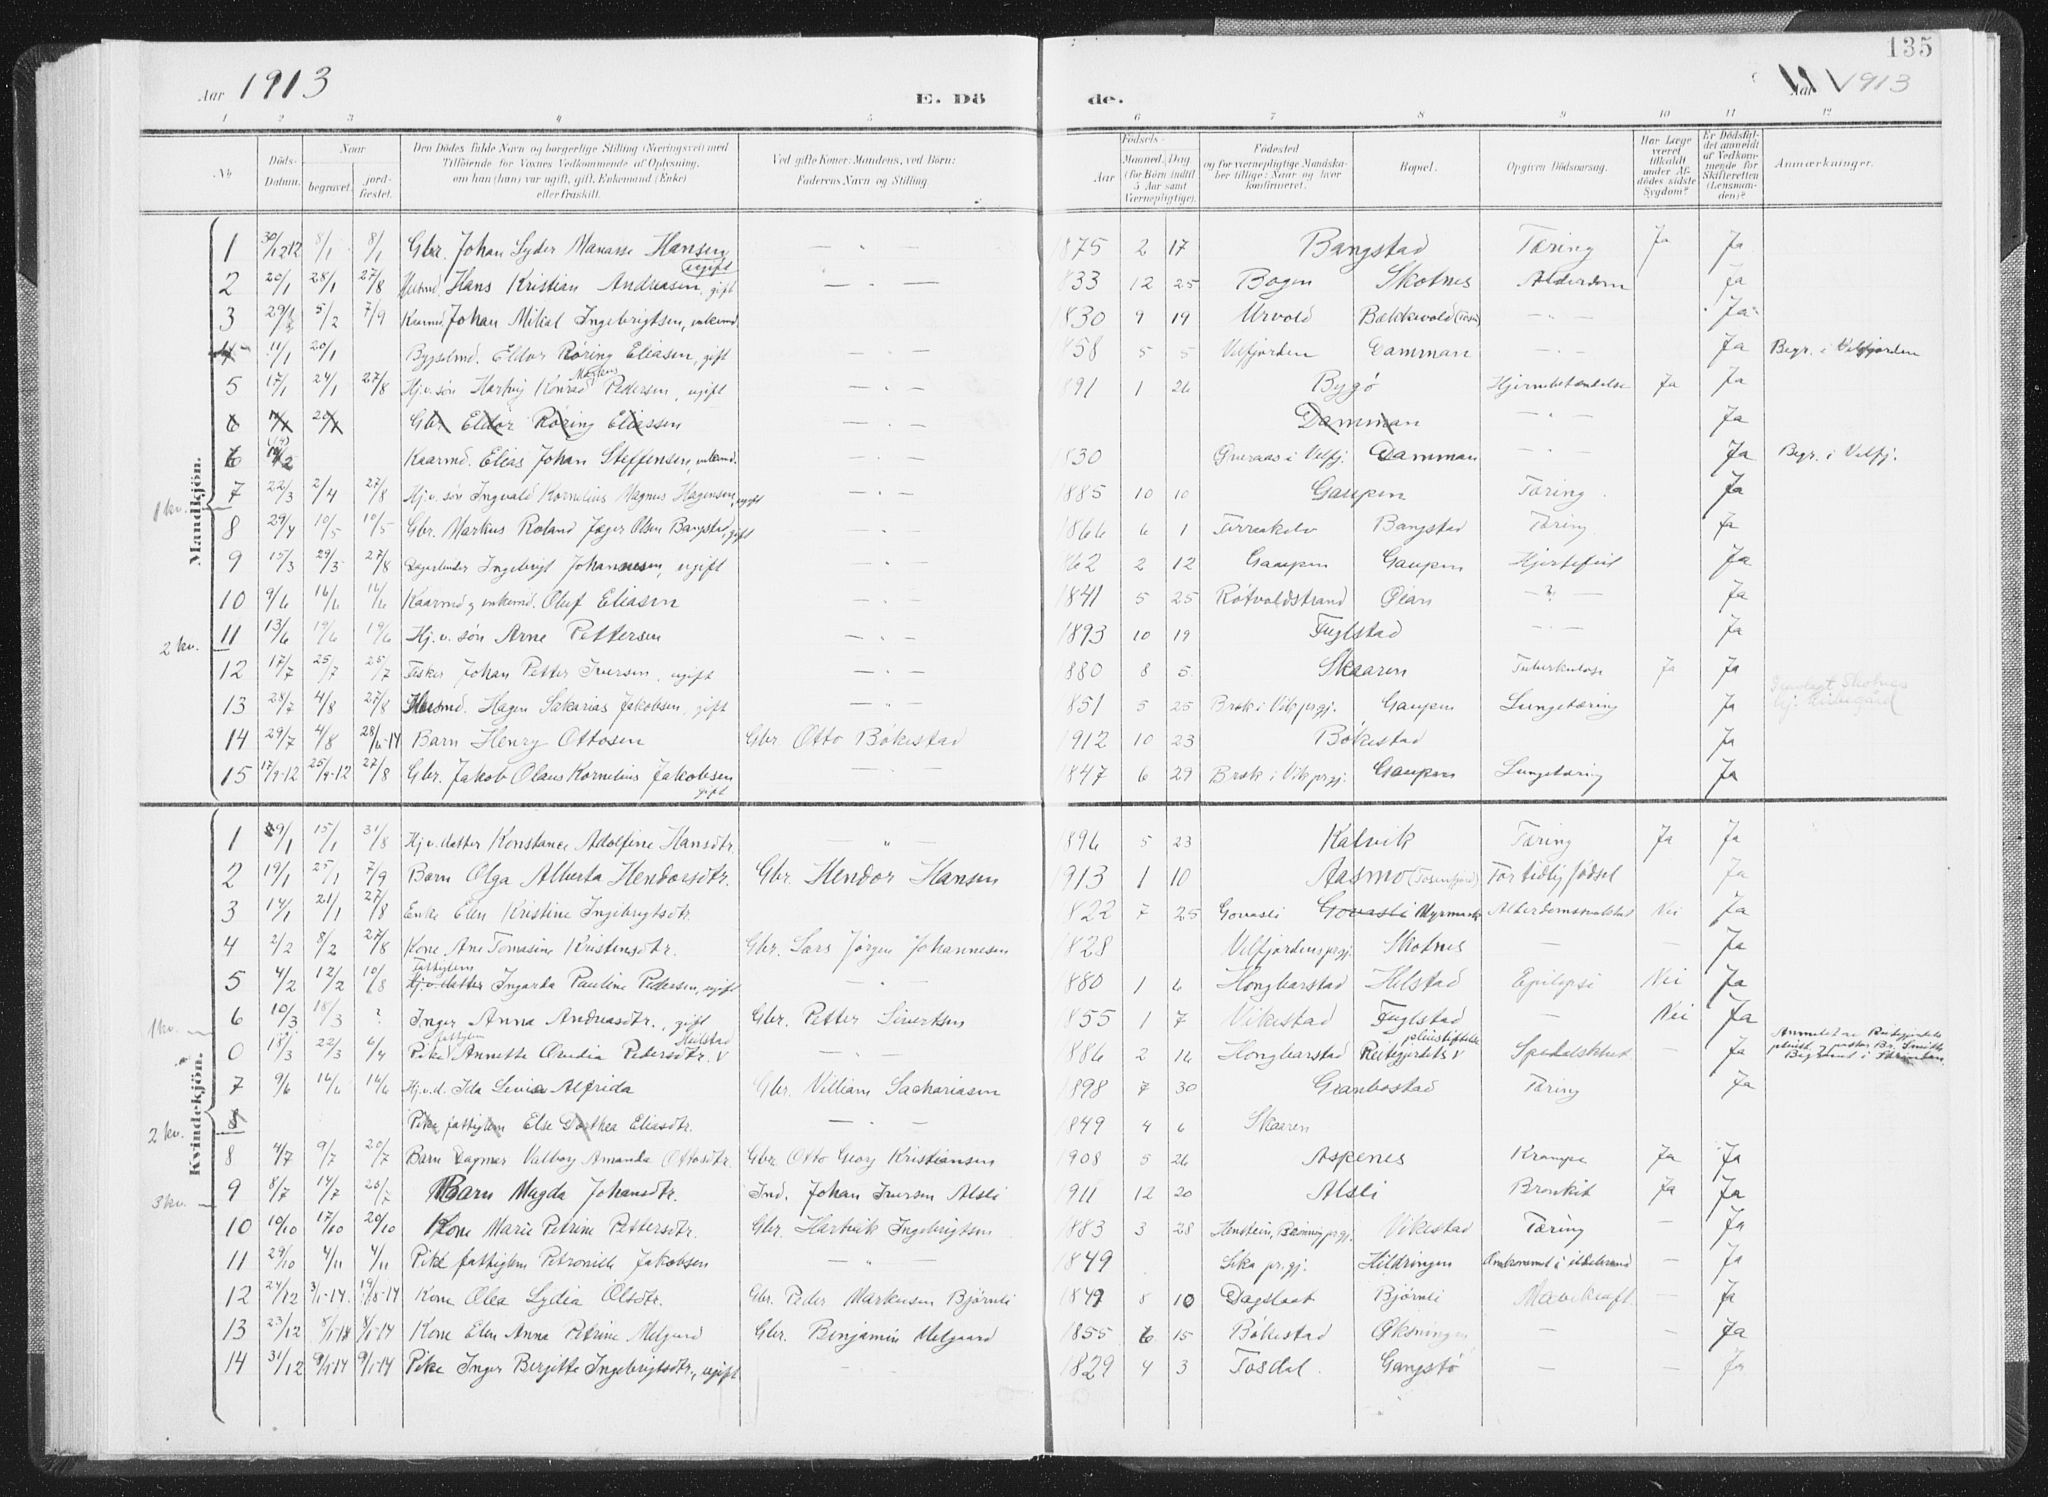 135
Aar 1913
E. Dö
de.
Aar 1913
1 2 3 4 5
6 7 8 9 10 11 12
No Döds-Datum. Naar begravet. jord-fæstet. Den Dödes fulde Navn og borgerlige Stilling (Næringsvei) med Tilföiende for Voxnes Vedkommende af Oplysning, om han (hun) var ugift, gift, Enkemand (Enke) eller fraskilt. Ved gifte Koner: Mandens, ved Börn: Faderens Navn og Stilling.
Födsels- Aar Maaned. Dag (for Börn indtil 5 Aar samt Værnepligtige). Födested og for værnepligtige Mandska-ber tillige: Naar og hvor konfirmeret. Bopæl. Opgiven Dödsaarsag. Har Læge været tilkaldt under Af-dödes sidste Sygdom? Er Dödsfal-det anmeldt af Vedkom-mende for Skifteretten (Lensman-den)? Anmærkninger.
Mandkjön.
1 30/12 12 8/1 8/1 Gbr. Johan Lyder Manasse Hansen ugift 1875 2 17 Bangstad Tæring Ja Ja
2 20/1 28/1 27/8 Hans Kristian Andreasen, gift 833 12 25 Bogen Skotnes Alderdom Ja
3 29/1 5/2 7/9 Johan Mikal Ingebrigtsen, enkemd. 1830 9 19 Urvold Bakkevold (Tosen) Ja
4 11/1 20/1 Bygselmd. Eldor Røring Eliasen, gift 858 5 5 Velfjorden Damman Ja Begr. i Velfjorden
5 17/1 24/1 27/8 Hj.v. søn Hartvig Konrad Markus Pedersen, ugift 891 1 26 Bygø Hjernebetændelse Ja Ja
6 Gbr Eldor Røring Eliassen Damman Ja
6 Kaarmd. Elias Johan Steffensen, enkemd. 830 i Velfj. Damman Ja Begr. i Velfj.
1 kv.
7 22/3 2/4 27/8 Hj.v. søn Ingvald Kornelius Magnus Hagensen, ugift 1885 10 10 Gaupen Tæring Ja
8 29/4 10/5 10/5 Gbr. Markus Roland Jæger Olsen Bangstad, gift 1866 6 1 Bangstad Tæring Ja
9 15/3 29/3 27/8 Ingebrigt Johannesen, ugift 862 2 12 Gaupen Gaupen Hjertefeil Ja
10 9/6 16/6 16/6 Kaarmd og enkemd. Oluf Eliasen 1841 5 25 Røtvoldstrand Ja
2 kv.
11 13/6 19/6 19/6 Hj.v. søn Arne Pettersen 1893 10 19 Fuglstad Ja
12 17/7 25/7 25/7 Fisker Johan Petter Iversen, ugift 880 8 5 Skaaren Tuberkulose Ja Ja
13 28/7 4/8 27/8 Husmd. Hagen Sakarias Jakobsen, gift 851 5 25 Brek i Vik prgj. Gaupen Lungetæring Ja
14 29/7 4/8 28/6-14 Barn Henry Ottosen Gbr. Otto Bøkestad 1912 10 23 Bøkestad Ja
15 17/9-12 25/9-12 27/8 Gbr. Jakob Olaus Kornelius Jakobsen gift 1847 6 29 Brek i Vik prgj. Gaupen Lungetæring Ja
Kvindekjön.
1 9/1 15/1 31/8 Hj.v. datter Konstance Adolfine Hansdtr. 1896 5 23 Kalvik Tæring Ja Ja
2 19/1 25/1 7/9 Barn Olga Alberta Hendorsdtr. Gbr. Hendor Hansen 1913 1 10 Aasmo (Tosenfjord) For tidlig fødsel Ja
3 14/1 21/1 27/8 Enke Elen Kristine Ingebrigtsdtr. 822 7 25 Govasli Govasli Myrmark Alderdomssvakhet Nei Ja
4 2/2 8/2 27/8 Kone Ane Tomasine Kristensdtr. Gbr. Lars Jørgen Johannesen 1828 Velfjordens prgj. Skotnes Ja
5 4/2 12/2 10/8 Fattiglem Hj.v. datter Ingarda Pauline Pedersen, ugift 880 1 6 Hongbarstad Helstad Epilepsi Nei Ja
1 kv.
6 10/3 18/3 ? Inger Anna Andreasdtr., gift Gbr. Petter Sivertsen 1855 1 7 Vikestad Fuglstad Nei Ja
0 18/3 22/3 6/4 Pike fattiglem Annette Pedersdtr. Helstad 1886 2 14 Hongbarstad Reitgjerdets pleiestiftelse Spedalskhet Ja
7 9/6 16/6 16/6 Hj.v.d. Ida Alfrida Gbr. Villiam Sachariasen 1898 7 30 Granbostad Tæring Ja
2 kv.
8 Pike fattiglem Else Dorthea Eliasdtr. 1849 4 6 Skaaren
8 4/7 9/7 20/7 Barn Dagmar Valborg Amanda Ottosdtr. Gbr. Otto Georg Kristiansen 1908 5 26 Aspenes Krampe Ja Ja
3 kv.
9 8/7 14/7 20/7 Barn Magda Johansdtr. Ind. Johan Iversen Alsli 911 12 20 Alsli Bronkit Ja Ja
10 10/10 17/10 20/10 Kone Marie Petrine Pettersdtr. Gbr. Hartvik Ingebrigtsen 1883 3 28 prgj. Vikestad Tæring Ja
11 29/10 4/11 4/11 Pike fattiglem Petronille Jakobsen 1849 Leka pr.gj. Hildringen Omkommet i ildebrand Ja
12 24/12 3/1-14 Kone Olea Lydia Olsdtr. Gbr. Peder Markusen Bjørnli 1849 8 10 Dagslaat Bjørnli Mavekræft Ja
13 23/12 8/1-14 8/1-14 Kone Elen Anna Petrine Melgard Gbr. Benjamin Melgaard 1855 6 15 Bøkestad Øksningen Ja
14 31/12 9/1-14 9/1-14 Pike Inger Bergitte Ingebrigtsdtr., ugift 1829 4 3 Tosdal Gangstø Ja